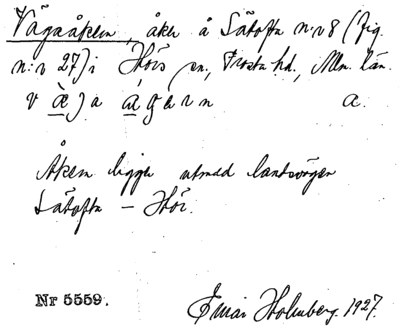 Vägaåkern, åker å Sätofta n:r 8 (fig.
n:r 27) i Hörs sn, Frosta hd, Mlm. län.
a.
Åkern ligger utmed landsvägen
Sätofta – Hör.
Nr 5559.
Einar Holmberg. 1927.